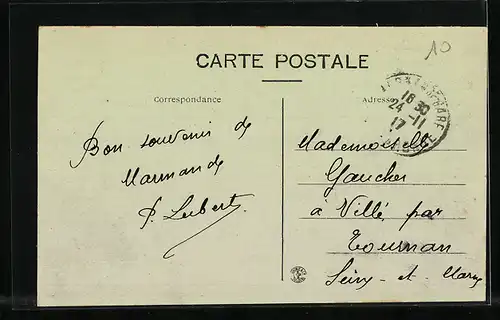 10
CARTE POSTALE
Correspondance
Adresse
GARE
16 30
24 -11
17
Bon souvenir de
Marmande
P. Lubert
Mademoiselle
Gaucher
à Villé, par
Tournan
Seine-et-Marne